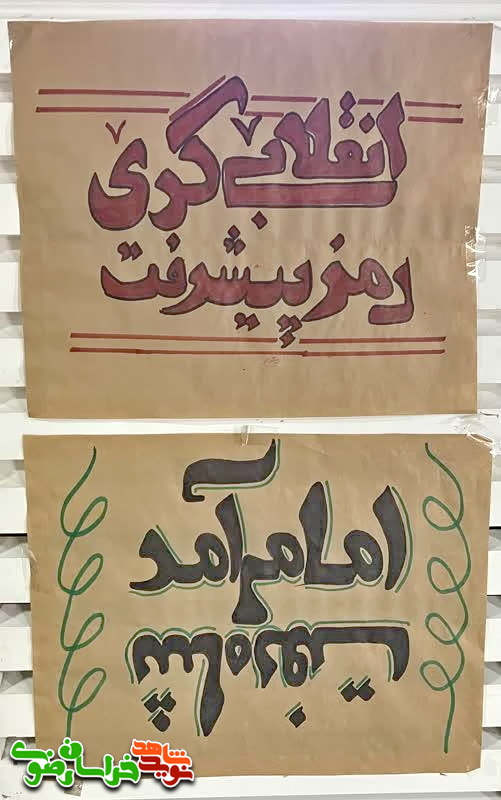 انقلابی گری
رمز پیشرفت
امام آمد
شاه رفت
نوید شاهد خراسان رضوی